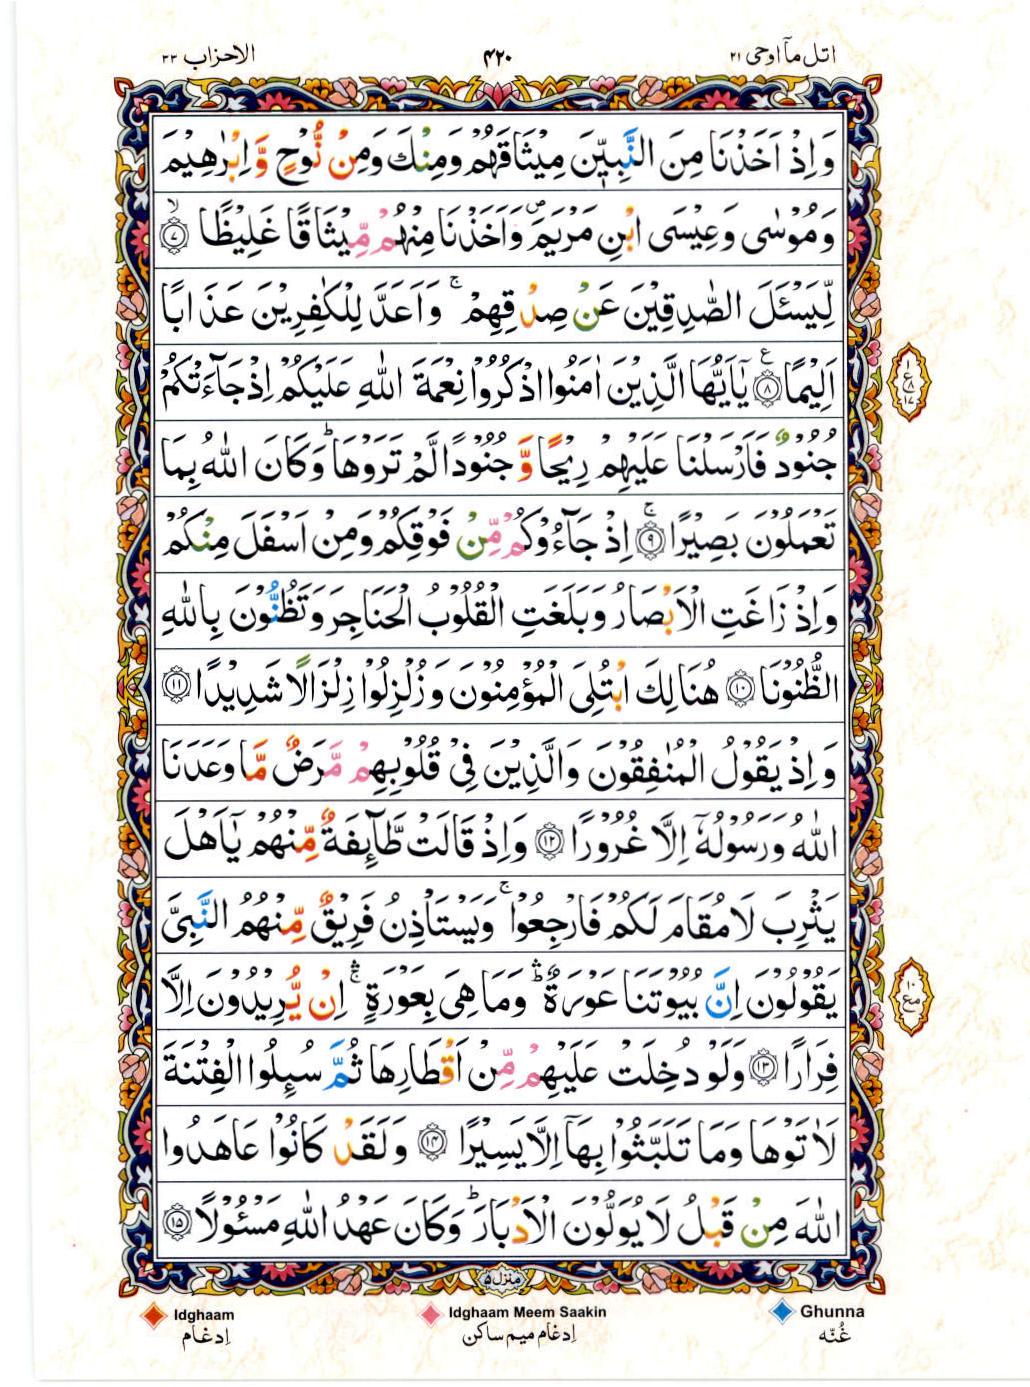 اتل مآ اوحی ۲۱
۴۲۰
الاحزاب ۳۳
وَاِذْ اَخَذْنَا مِنَ النَّبِیّٖنَ مِیْثَاقَهُمْ وَمِنْكَ وَمِنْ نُّوْحٍ وَّاِبْرٰهِیْمَ
وَمُوْسٰی وَعِیْسَی ابْنِ مَرْیَمَ ۪ وَاَخَذْنَا مِنْهُمْ مِّیْثَاقًا غَلِیْظًا ۙ ﴿۷﴾
لِّیَسْـَٔلَ الصّٰدِقِیْنَ عَنْ صِدْقِهِمْ ۚ وَاَعَدَّ لِلْكٰفِرِیْنَ عَذَابًا
اَلِیْمًا ﴿۸﴾ ع یٰۤاَیُّهَا الَّذِیْنَ اٰمَنُوا اذْكُرُوْا نِعْمَةَ اللّٰهِ عَلَیْكُمْ اِذْ جَآءَتْكُمْ
جُنُوْدٌ فَاَرْسَلْنَا عَلَیْهِمْ رِیْحًا وَّجُنُوْدًا لَّمْ تَرَوْهَا ؕ وَكَانَ اللّٰهُ بِمَا
تَعْمَلُوْنَ بَصِیْرًا ۚ ﴿۹﴾ اِذْ جَآءُوْكُمْ مِّنْ فَوْقِكُمْ وَمِنْ اَسْفَلَ مِنْكُمْ
وَاِذْ زَاغَتِ الْاَبْصَارُ وَبَلَغَتِ الْقُلُوْبُ الْحَنَاجِرَ وَتَظُنُّوْنَ بِاللّٰهِ
الظُّنُوْنَا ﴿۱۰﴾ هُنَالِكَ ابْتُلِیَ الْمُؤْمِنُوْنَ وَزُلْزِلُوْا زِلْزَالًا شَدِیْدًا ﴿۱۱﴾
وَاِذْ یَقُوْلُ الْمُنٰفِقُوْنَ وَالَّذِیْنَ فِیْ قُلُوْبِهِمْ مَّرَضٌ مَّا وَعَدَنَا
اللّٰهُ وَرَسُوْلُهٗۤ اِلَّا غُرُوْرًا ﴿۱۲﴾ وَاِذْ قَالَتْ طَّآئِفَةٌ مِّنْهُمْ یٰۤاَهْلَ
یَثْرِبَ لَا مُقَامَ لَكُمْ فَارْجِعُوْا ۚ وَیَسْتَاْذِنُ فَرِیْقٌ مِّنْهُمُ النَّبِیَّ
یَقُوْلُوْنَ اِنَّ بُیُوْتَنَا عَوْرَةٌ ؕۛ وَمَا هِیَ بِعَوْرَةٍ ۚۛ اِنْ یُّرِیْدُوْنَ اِلَّا
فِرَارًا ﴿۱۳﴾ وَلَوْ دُخِلَتْ عَلَیْهِمْ مِّنْ اَقْطَارِهَا ثُمَّ سُىِٕلُوا الْفِتْنَةَ
لَاٰتَوْهَا وَمَا تَلَبَّثُوْا بِهَاۤ اِلَّا یَسِیْرًا ﴿۱۴﴾ وَلَقَدْ كَانُوْا عَاهَدُوا
اللّٰهَ مِنْ قَبْلُ لَا یُوَلُّوْنَ الْاَدْبَارَ ؕ وَكَانَ عَهْدُ اللّٰهِ مَسْـُٔوْلًا ﴿۱۵﴾
منزل ۵
Idghaam
اِدغام
Idghaam Meem Saakin
اِدغام میم ساکن
Ghunna
غُنّه